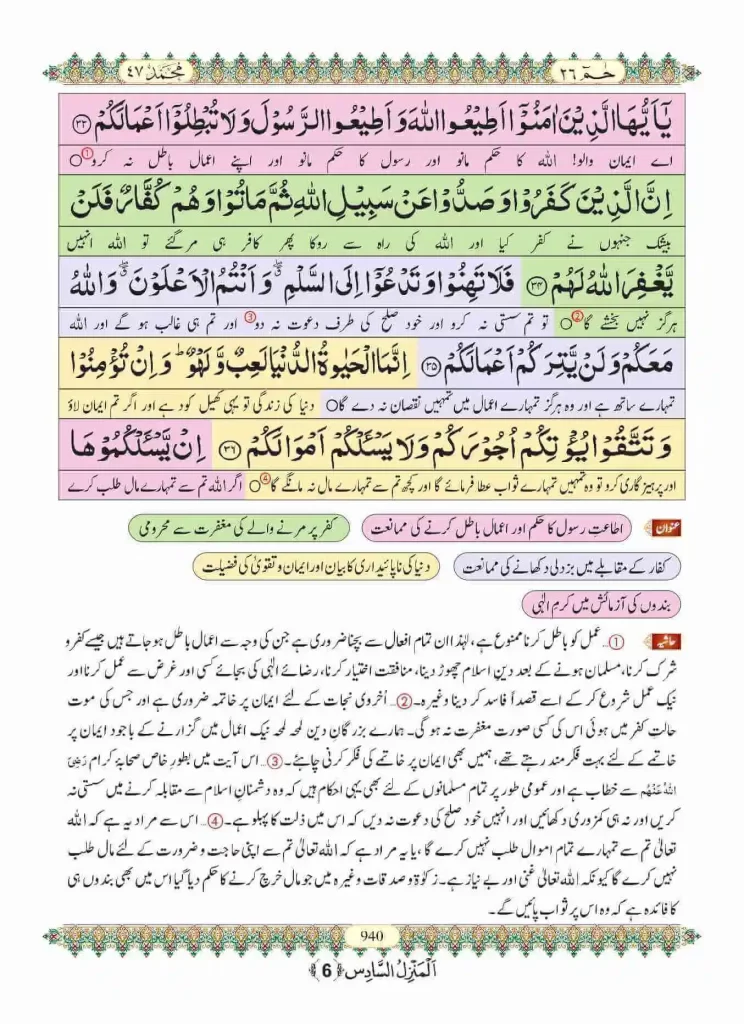 حٰمٓ ٢٦
مُحَمَّد ٤٧
يٰۤاَيُّهَا الَّذِيْنَ اٰمَنُوْۤا اَطِيْعُوا اللّٰهَ وَ اَطِيْعُوا الرَّسُوْلَ وَ لَا تُبْطِلُوْۤا اَعْمَالَكُمْ ﴿۳۳﴾
اے ایمان والو! اللہ کا حکم مانو اور رسول کا حکم مانو اور اپنے اعمال باطل نہ کرو ① ○
اِنَّ الَّذِيْنَ كَفَرُوْا وَ صَدُّوْا عَنْ سَبِيْلِ اللّٰهِ ثُمَّ مَاتُوْا وَ هُمْ كُفَّارٌ فَلَنْ
بیشک جنہوں نے کفر کیا اور اللہ کی راہ سے روکا پھر کافر ہی مر گئے تو اللہ انہیں
يَّغْفِرَ اللّٰهُ لَهُمْ ﴿۳۴﴾ فَلَا تَهِنُوْا وَ تَدْعُوْۤا اِلَى السَّلْمِ ۖۗ وَ اَنْتُمُ الْاَعْلَوْنَ ۖۗ وَ اللّٰهُ
ہرگز نہیں بخشے گا ② ○ تو تم سستی نہ کرو اور خود صلح کی طرف دعوت نہ دو ③ اور تم ہی غالب ہو گے اور اللہ
مَعَكُمْ وَ لَنْ يَّتِرَكُمْ اَعْمَالَكُمْ ﴿۳۵﴾ اِنَّمَا الْحَيٰوةُ الدُّنْيَا لَعِبٌ وَّ لَهْوٌ ؕ وَ اِنْ تُؤْمِنُوْا
تمہارے ساتھ ہے اور وہ ہرگز تمہارے اعمال میں تمہیں نقصان نہ دے گا ○ دنیا کی زندگی تو یہی کھیل کود ہے اور اگر تم ایمان لاؤ
وَ تَتَّقُوْا يُؤْتِكُمْ اُجُوْرَكُمْ وَ لَا يَسْـَٔلْكُمْ اَمْوَالَكُمْ ﴿۳۶﴾ اِنْ يَّسْـَٔلْكُمُوْهَا
اور پرہیزگاری کرو تو وہ تمہیں تمہارے ثواب عطا فرمائے گا اور کچھ تم سے تمہارے مال نہ مانگے گا ④ ○ اگر اللہ تم سے تمہارے مال طلب کرے
عنوان اطاعتِ رسول کا حکم اور اعمال باطل کرنے کی ممانعت کفر پر مرنے والے کی مغفرت سے محرومی
کفار کے مقابلے میں بزدلی دکھانے کی ممانعت دنیا کی ناپائیداری کا بیان اور ایمان و تقویٰ کی فضیلت
بندوں کی آزمائش میں کرمِ الٰہی
حاشیہ ①… عمل کو باطل کرنا ممنوع ہے، لہٰذا ان تمام افعال سے بچنا ضروری ہے جن کی وجہ سے اعمال باطل ہو جاتے ہیں جیسے کفر و
شرک کرنا، مسلمان ہونے کے بعد دینِ اسلام چھوڑ دینا، منافقت اختیار کرنا، رضائے الٰہی کی بجائے کسی اور غرض سے عمل کرنا اور
نیک عمل شروع کر کے اسے قصداً فاسد کر دینا وغیرہ۔ ②… اُخروی نجات کے لئے ایمان پر خاتمہ ضروری ہے اور جس کی موت
حالتِ کفر میں ہوئی اس کی کسی صورت مغفرت نہ ہو گی۔ ہمارے بزرگانِ دین لمحہ لمحہ نیک اعمال میں گزارنے کے باوجود ایمان پر
خاتمے کے لئے بہت فکر مند رہتے تھے، ہمیں بھی ایمان پر خاتمے کی فکر کرنی چاہئے۔ ③… اس آیت میں بطورِ خاص صحابۂ کرام رَضِیَ
اللہُ عَنْہُم سے خطاب ہے اور عمومی طور پر تمام مسلمانوں کے لئے بھی یہی احکام ہیں کہ وہ دشمنانِ اسلام سے مقابلہ کرنے میں سستی نہ
کریں اور نہ ہی کمزوری دکھائیں اور انہیں خود صلح کی دعوت نہ دیں کہ اس میں ذلت کا پہلو ہے۔ ④… اس سے مراد یہ ہے کہ اللہ
تعالیٰ تم سے تمہارے تمام اموال طلب نہیں کرے گا، یا یہ مراد ہے کہ اللہ تعالیٰ تم سے اپنی حاجت و ضرورت کے لئے مال طلب
نہیں کرے گا کیونکہ اللہ تعالیٰ غنی اور بے نیاز ہے۔ زکوٰۃ و صدقات وغیرہ میں جو مال خرچ کرنے کا حکم دیا گیا اس میں بھی بندوں ہی
کا فائدہ ہے کہ وہ اس پر ثواب پائیں گے۔
940
اَلْمَنْزِلُ السَّادِس ﴿6﴾